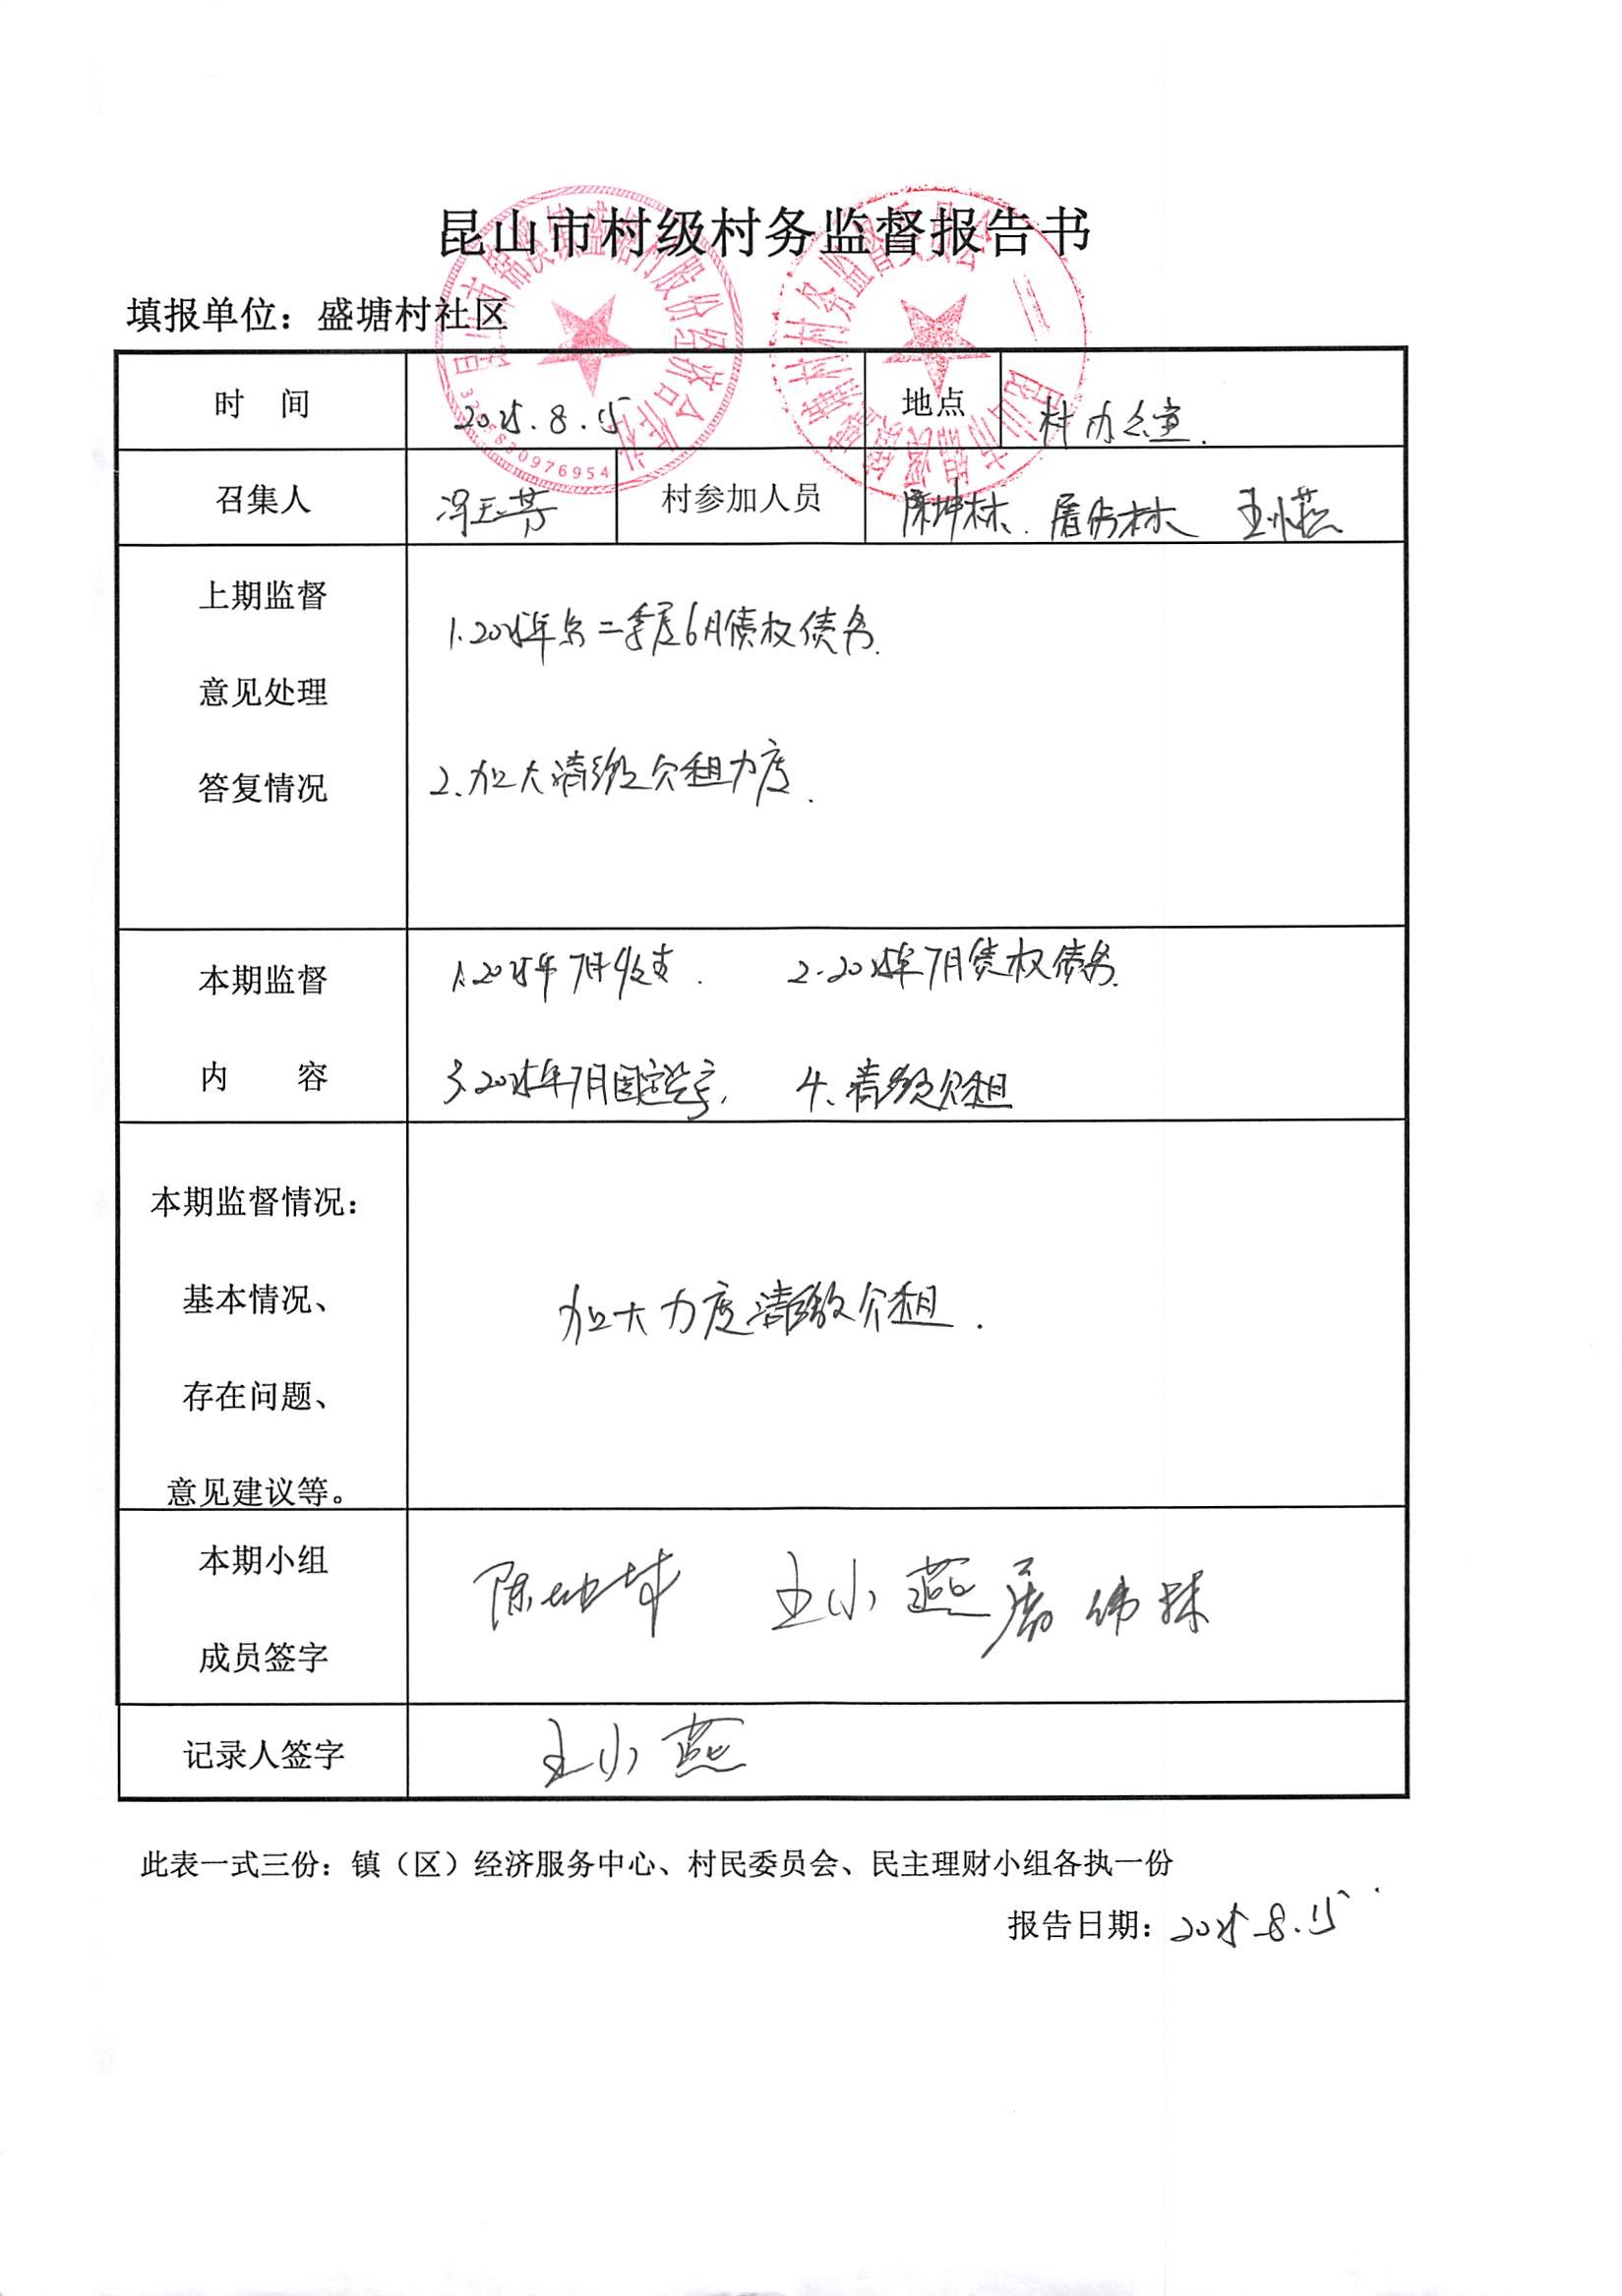 昆山市村级村务监督报告书
填报单位：盛塘村社区
时 间 2025.8.15 地点 村办公室.
召集人 冯玉芳 村参加人员 陈坤林. 屠伟林 王小燕
上期监督
意见处理
答复情况
1.2025年第二季度6月债权债务.
2.加大清缴欠租力度.
本期监督
内 容
1.2025年7月收支. 2.2025年7月债权债务.
3.2025年7月固定资产. 4.清缴欠租
本期监督情况：
基本情况、
存在问题、
意见建议等。
加大力度清缴欠租.
本期小组
成员签字
王小燕
记录人签字 王小燕
此表一式三份：镇（区）经济服务中心、村民委员会、民主理财小组各执一份
报告日期：2025.8.15
昆山市锦溪镇盛塘村股份经济合作社
昆山市锦溪镇盛塘村村务监督委员会